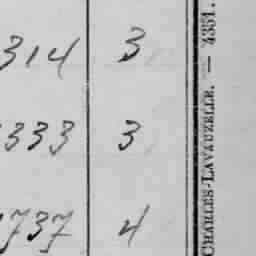 314 3
333 3
737 4
CHARLES-LAVAUZELLE. — 4351.